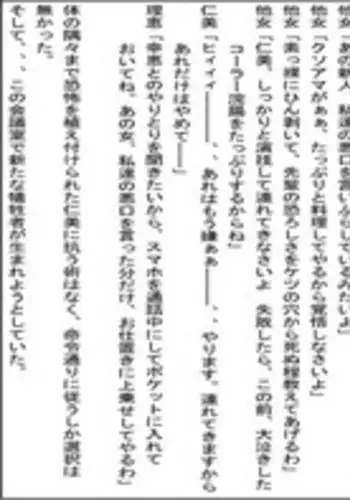 他女「あの新人、私達の悪口を言いふらしているみたいよ」
他女「クソアマがぁぁ、たっぷりと料理してやるから覚悟しなさいよ」
他女「素っ裸にひん剥いて、先輩の恐ろしさをケツの穴から死ぬ程教えてあげるわ」
他女「仁美、しっかりと演技して連れてきなさいよ 失敗したら、この前、大泣きした
コーラー浣腸をたっぷりするからね」
仁美「ヒィィィ――――、、あれはもう嫌ぁぁ――――、、やります。連れてきますから
あれだけはやめて――」
理恵「幸恵とのやりとりを聞きたいから、スマホを通話中にしてポケットに入れて
おいてね。あの女、私達の悪口を言った分だけ、お仕置きに上乗せしてやるわ」
体の隅々まで恐怖を植え付けられた仁美に抗う術はなく、命令通りに従うしか選択は
無かった。
そして、、、この会議室で新たな犠牲者が生まれようとしていた。